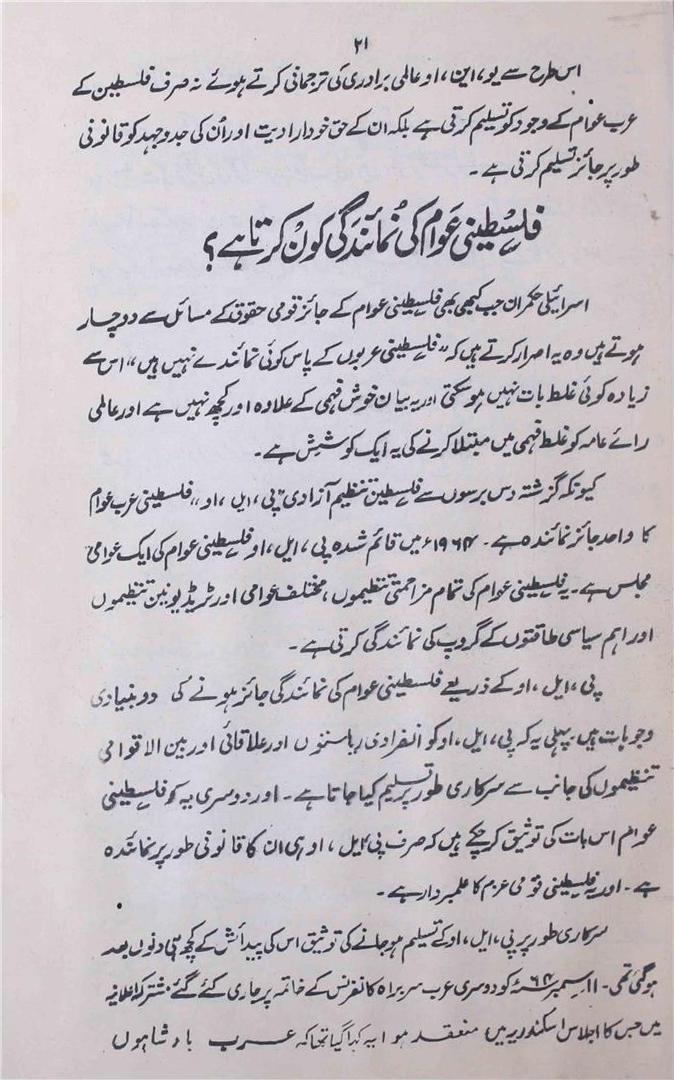 ۲۱
اس طرح سے یو، این، او عالمی برادری کی ترجمانی کرتے ہوئے نہ صرف فلسطین کے
عرب عوام کے وجود کو تسلیم کرتی ہے بلکہ ان کے حق خود ارادیت اور اُن کی جدوجہد کو قانونی
طور پر جائز تسلیم کرتی ہے۔
فلسطینی عوام کی نمائندگی کون کرتا ہے؟
اسرائیلی حکمران جب کبھی بھی فلسطینی عوام کے جائز قومی حقوق کے مسائل سے دو چار
ہوتے ہیں وہ یہ اصرار کرتے ہیں کہ "فلسطینی عربوں کے پاس کوئی نمائندے نہیں ہیں" اس سے
زیادہ کوئی غلط بات نہیں ہو سکتی اور یہ بیان خوش فہمی کے علاوہ اور کچھ نہیں ہے اور عالمی
رائے عامہ کو غلط فہمی میں مبتلا کرنے کی یہ ایک کوشش ہے۔
کیونکہ گزشتہ دس برسوں سے فلسطین تنظیم آزادی "پی، ایل، او" فلسطینی عرب عوام
کا واحد جائز نمائندہ ہے۔ ۱۹۶۴ء میں قائم شدہ پی، ایل، او فلسطینی عوام کی ایک عوامی
مجلس ہے۔ یہ فلسطینی عوام کی تمام مزاحمتی تنظیموں، مختلف عوامی اور ٹریڈ یونین تنظیموں
اور اہم سیاسی طاقتوں کے گروپ کی نمائندگی کرتی ہے۔
پی، ایل، او کے ذریعے فلسطینی عوام کی نمائندگی جائز ہونے کی دو بنیادی
وجوہات ہیں۔ پہلی یہ کہ پی، ایل، او کو انفرادی ریاستوں اور علاقائی اور بین الاقوامی
تنظیموں کی جانب سے سرکاری طور پر تسلیم کیا جاتا ہے۔ اور دوسری یہ کو فلسطینی
عوام اس بات کی توثیق کر چکے ہیں کہ صرف پی، ایل، او ہی ان کا قانونی طور پر نمائندہ
ہے۔ اور یہ فلسطینی قومی عزم کا علمبردار ہے۔
سرکاری طور پر پی، ایل، او کے تسلیم ہو جانے کی توثیق اس کی پیدائش کے کچھ ہی دنوں بعد
ہو گئی تھی۔ ۱۱ ستمبر ۶۴ء کو دوسری عرب سربراہ کانفرنس کے خاتمہ پر جاری کئے گئے مشترکہ اعلانیہ
میں جس کا اجلاس اسکندریہ میں منعقد ہوا یہ کہا گیا تھا کہ عرب بادشاہوں